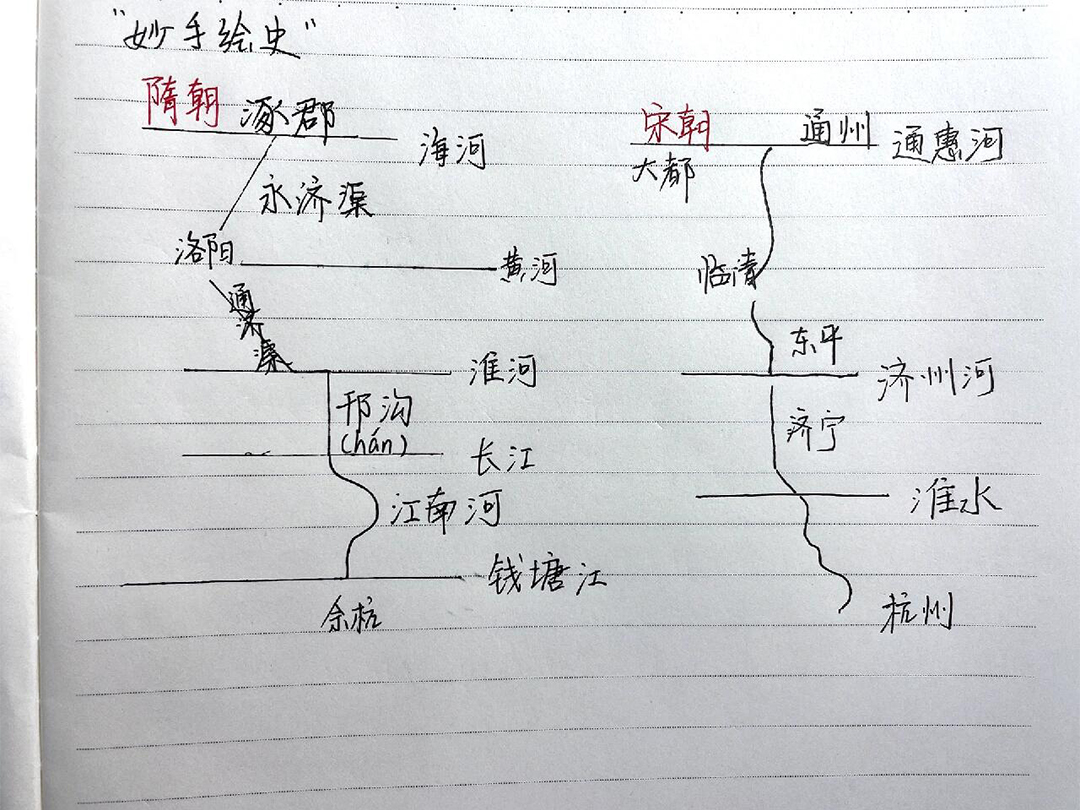 "妙手绘史"
隋朝 涿郡
海河
永济渠
洛阳
黄河
通济渠
淮河
邗沟
(hán)
长江
江南河
钱塘江
余杭
宋朝 通州 通惠河
大都
临清
东平
济州河
济宁
淮水
杭州